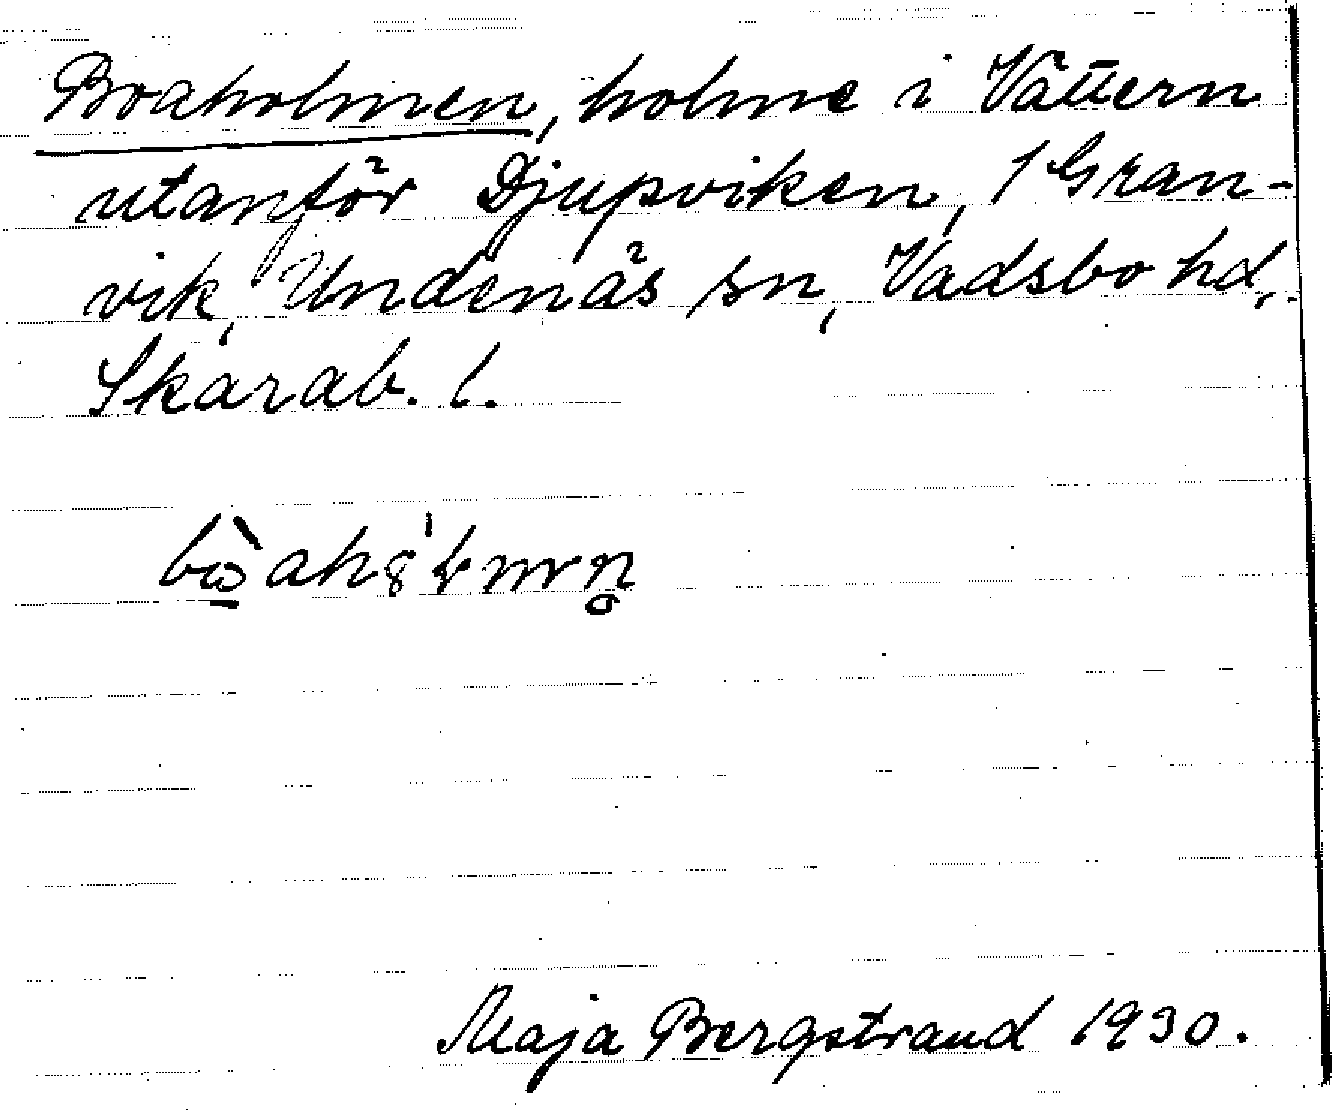 Boaholmen, holme i Vättern
utanför Djupviken, 1 Gran-
vik, Undenäs sn, Vadsbo hd,
Skarab. l.
Maja Bergstrand 1930.